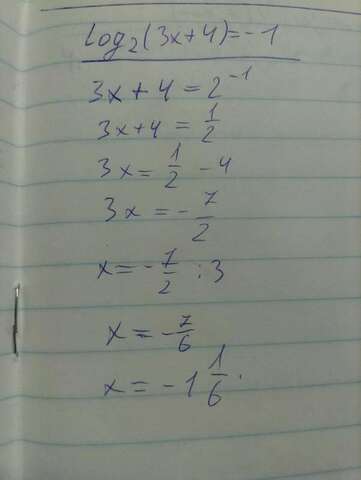 log₂(3x+4)=-1
3x+4=2⁻¹
3x+4=1/2
3x=1/2-4
3x=-7/2
x=-7/2:3
x=-7/6
x=-1 1/6.